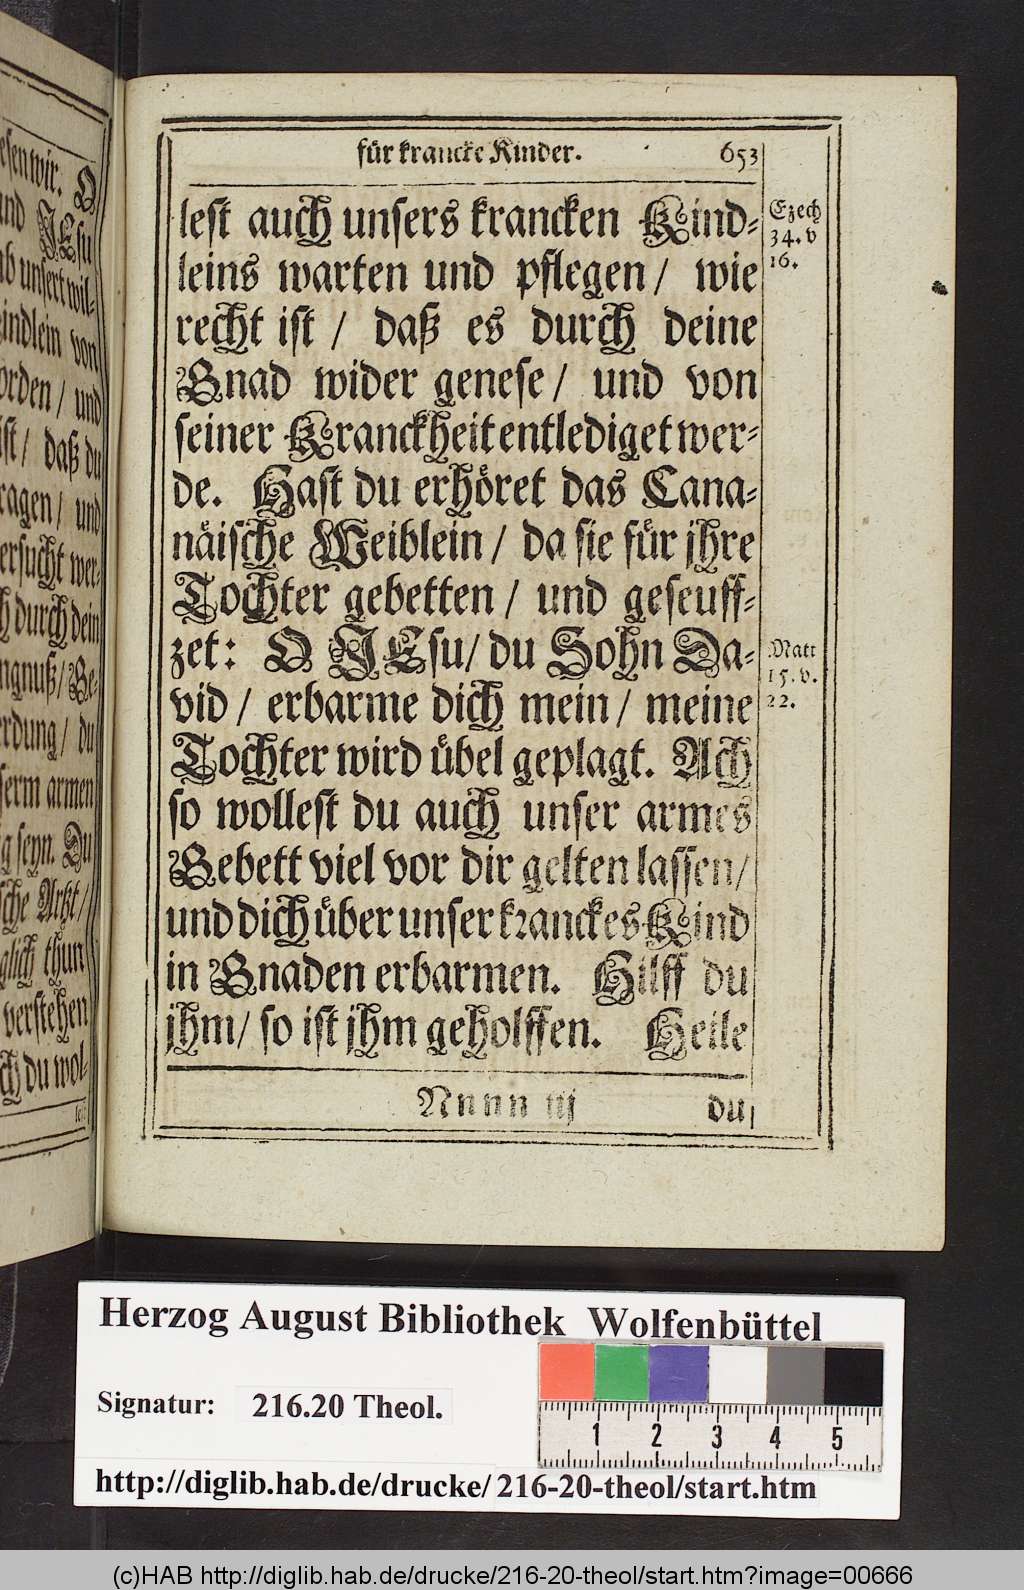 für krancke Kinder. 653
lest auch unsers krancken Kind-
leins warten und pflegen/ wie
recht ist/ daß es durch deine
Gnad wider genese/ und von
seiner Kranckheit entlediget wer-
de. Hast du erhöret das Cana-
näische Weiblein/ da sie für jhre
Tochter gebetten/ und geseuff-
zet: O JEsu/ du Sohn Da-
vid/ erbarme dich mein/ meine
Tochter wird übel geplagt. Ach
so wollest du auch unser armes
Gebett viel vor dir gelten lassen/
und dich über unser kranckes Kind
in Gnaden erbarmen. Hilff du
jhm/ so ist jhm geholffen. Heile
Nnnn iij du
Ezech
34. v
16.
Matt
15. v.
22.
esen wir. O
und JEsu
ab unsert wil-
indlein von
orden/ und
ist/ daß du
ragen/ und
ersucht wer-
h durch dein
ngnuß/ Be-
erdung/ du
serm armen
g seyn. Du
sche Artzt/
glich thun
verstehen
ch du wol-
Herzog August Bibliothek Wolfenbüttel
Signatur: 216.20 Theol.
1 2 3 4 5
http://diglib.hab.de/drucke/216-20-theol/start.htm
(c)HAB http://diglib.hab.de/drucke/216-20-theol/start.htm?image=00666